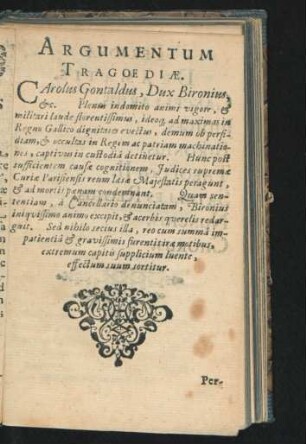 ARGUMENTUM
TRAGOEDIÆ.
CArolus Gontaldus, Dux Bironius,
&c. Plenus indomito animi vigore, &
militari laude florentissimus, ideoq; ad maximas in
Regno Gallico dignitates evectus, demum ob perfi-
diam, & occultas in Regem ac patriam machinatio-
nes, captivus in custodiâ detinetur. Hunc post
sufficientem causæ cognitionem, Judices supremæ
Curiæ Parisiensis reum læsæ Majestatis peragunt
& ad mortis pœnam condemnant. Quam sen-
tentiam, à Cancellario denunciatam, Bironius
iniquissimo animo excipit, & acerbis querelis redar-
guit. Sed nihilo secius illa, reo cum summâ im-
patientiâ & gravissimis furentis iræ motibus,
extremum capitis supplicium luente,
effectum suum sortitur.
Per-